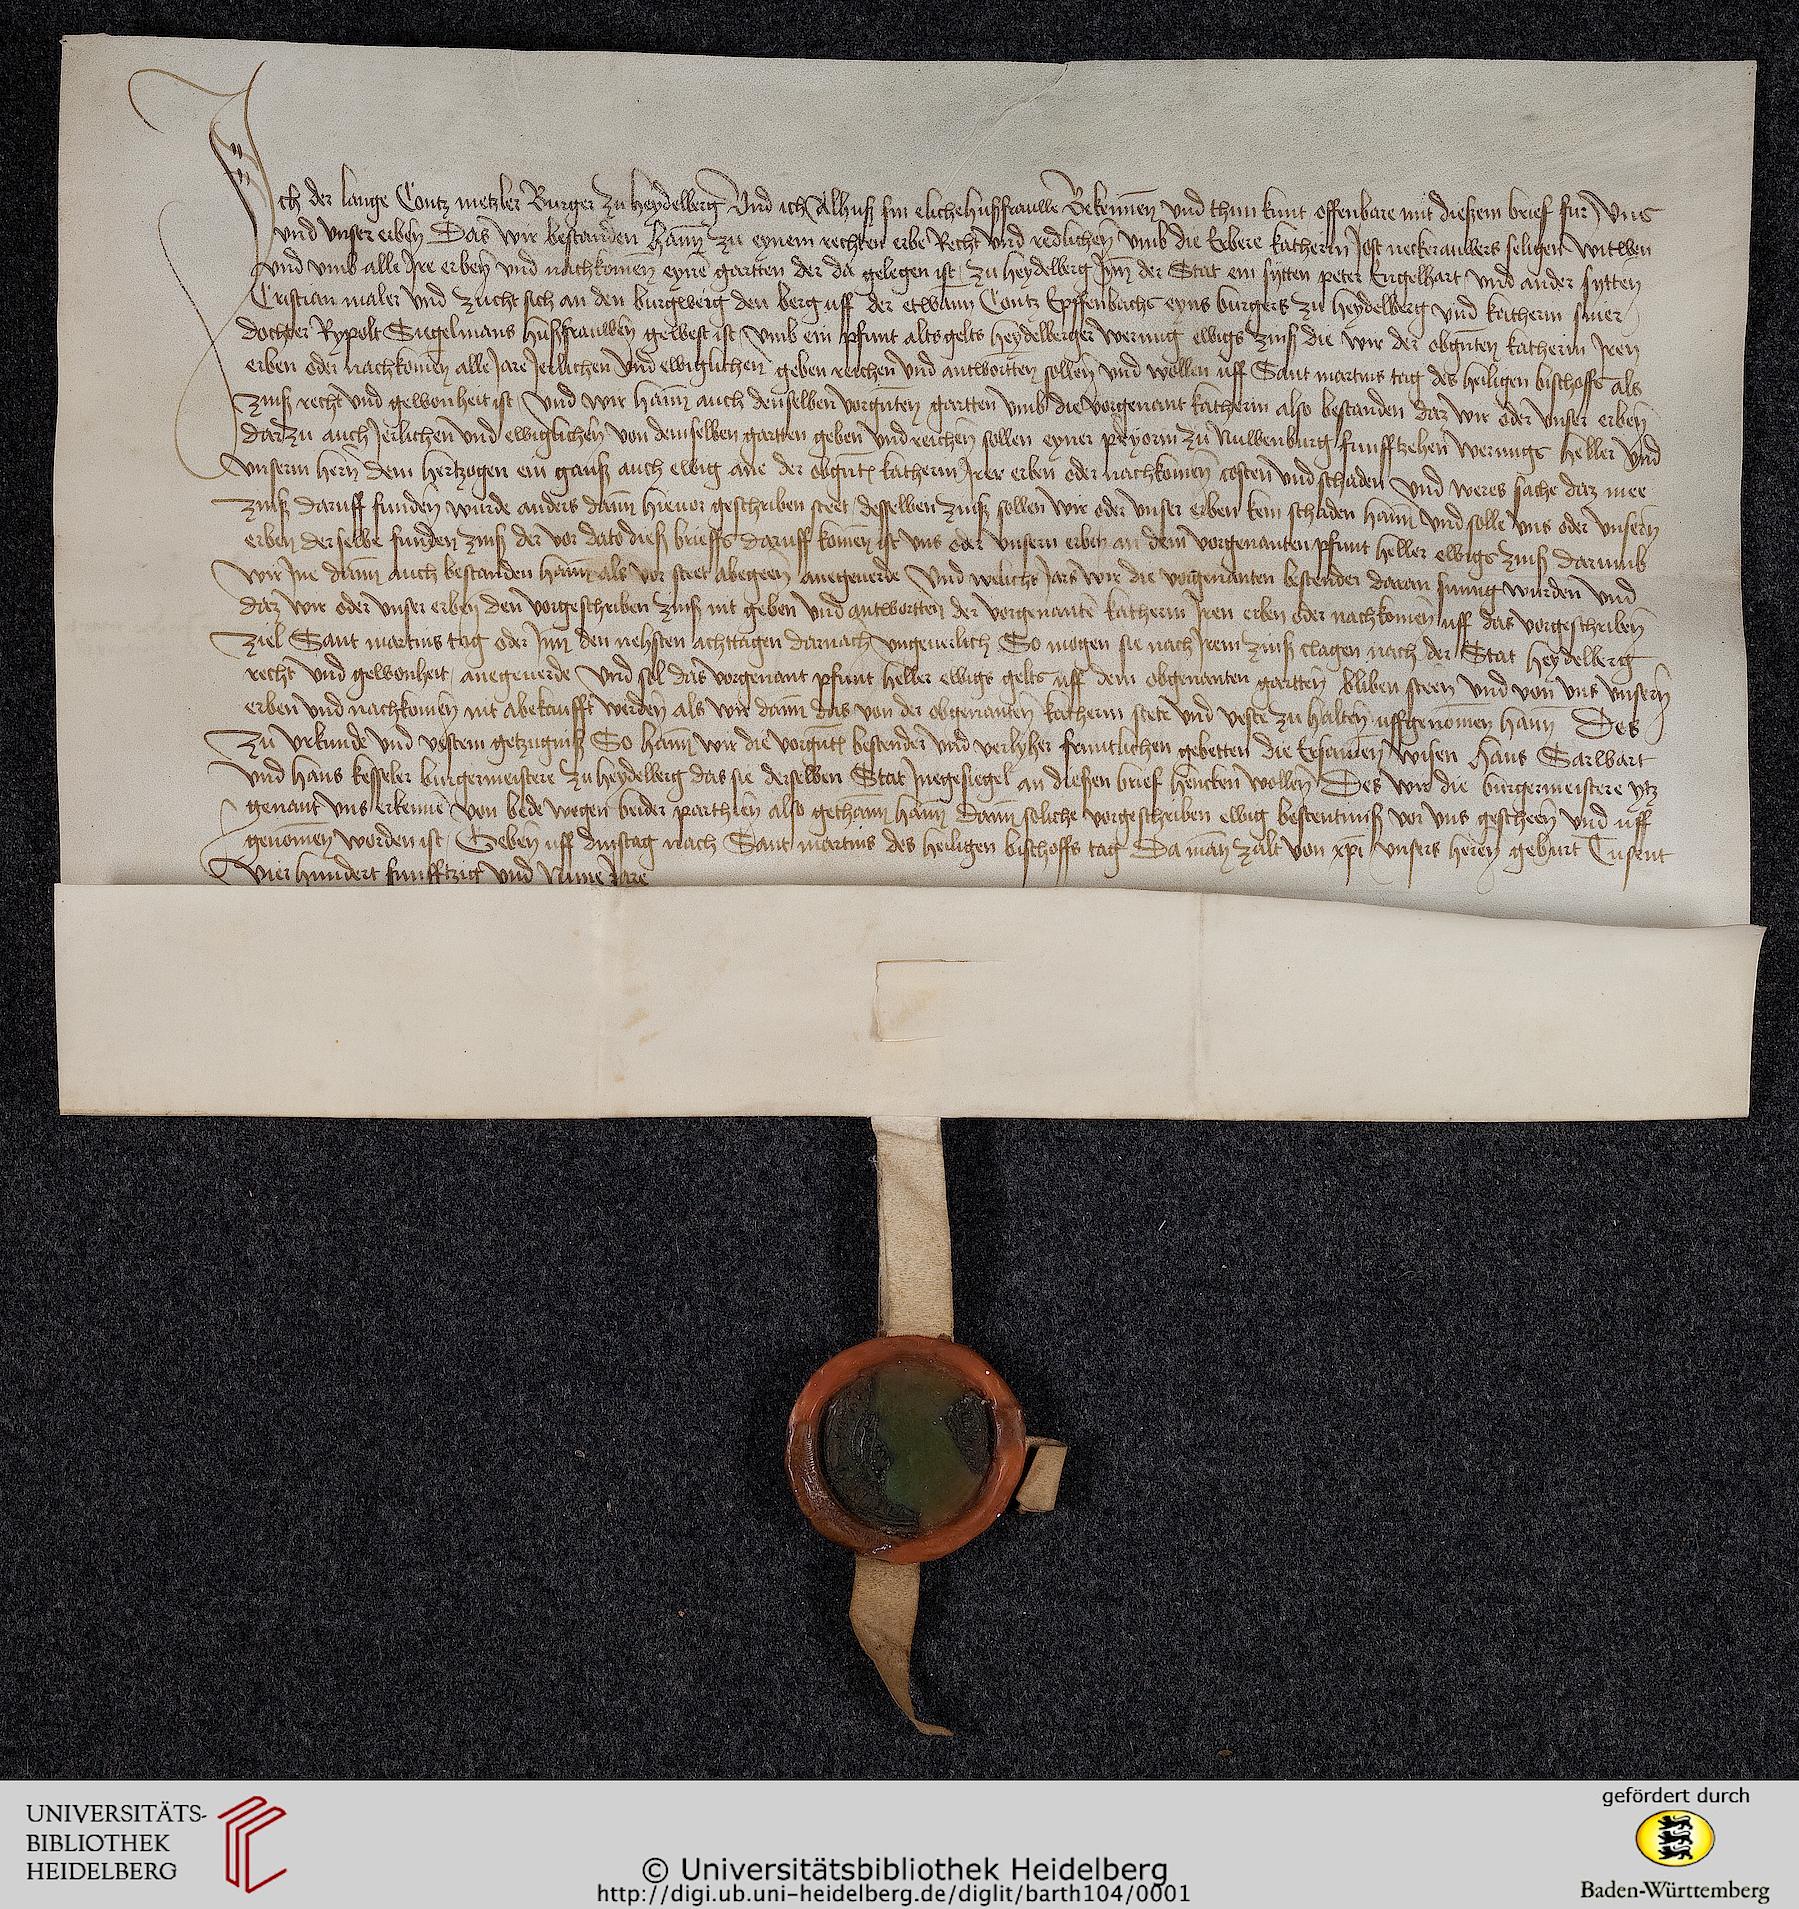 Ich der lange Contz metzler Burger zu heydelberg Und ich Alhuß sin elichehußfrauwe Bekennen und thun kunt offenbare mit dießem brief fur Uns
und unser erben Das wir bestanden hann zu eynem rechten erbe Recht und redlichen umb die Erbere katherin Jost neckerauwers seligen witwen
und umb alle Ire erben und nachkomen eynen gartten der da gelegen ist zu heydelberg Inn der Stat ein sytten peter Engelhart und ander sytten
Cristian maler und zucht sich an den burgweig den berg uff der etwann Contz Epffenbachs eyns burgers zu heydelberg und katherin siner
dochter Rypolt Sigelmans hußfrauwen gewest ist umb ein pfunt alts gelts heydelberger werung ewigs zinß die wir der obgnten katherin Iren
erben oder nachkomen alle Jare Jerlichen und ewiglichen geben reichen und antwortten sollen und wollen uff Sant martins tag des heiligen bischoffs als
zinß recht und gewonheit ist und wir hann auch denselben vorgnten gartten umb die vorgenant katherin also bestanden daz wir oder unser erben
darzu auch Jerlichen und ewiglichen von demselben gartten geben und reichen sollen eyner pryorin zu Nuwenburg funfftzehen werungs heller und
unserm hern dem hertzogen ein ganß auch ewig ane der obgnt katherin Irer erben oder nachkomen costen und schaden Und weres sache daz mee
zinß daruff funden wurde anders dann hievor geschriben steet desselben zinß sollen wir oder unser erben kein schaden hann und solle uns oder unsern
erben derselbe funden zinß der vor dato dieß brieffs daruff komen ist uns oder unsern erben an dem vorgenanten pfunt heller ewigs zinß darumb
wir Ine dann auch bestanden hann als vor steet abegeen anegeverde Und welichs Jars wir die vorgenanten bestender daran sumig wurden und
daz wir oder unser erben den vorgeschriben zinß nit geben und antwortten der vorgenanten katherin Iren erben oder nachkomen uff das vorgeschriben
ziel Sant martins tag oder Inn den nehsten achttagen darnach ungeverlich So mogen sie nach Irem zinß clagen nach der Stat heydelberg
recht und gewonheit anegeverde Und sol das vorgenant pfunt heller ewigs gelts uff dem obgenanten gartten bliben steen und von uns unsern
erben und nachkomen nit abekaufft werden als wir dann das von der obgenanten katherin stete und veste zu halten uffgenomen hann Des
zu urkunde und vestem getzugniß So hann wir die vorgnt bestender und verlyher fruntlichen gebetten die Ersamen wisen hans Sarwart
und hans kesseler burgermeistere zu heydelberg das sie derselben Stat Ingesiegel an dießen brief hencken wollen Des wir die burgermeistere ytz
genant uns erkennen von bede wegen beider parthien also gethann hann dann soliche vorgeschriben ewig bestentniß vor uns gescheen und uff
genomen worden ist Geben uff dinstag nach Sant martins des heiligen bischoffs tag Da man zalt von xpi unsers heren geburt Tusent
vier hundert funfftzig und Nune Jare
UNIVERSITÄTS-
BIBLIOTHEK
HEIDELBERG
© Universitätsbibliothek Heidelberg
http://digi.ub.uni-heidelberg.de/diglit/barth104/0001
gefördert durch
Baden-Württemberg